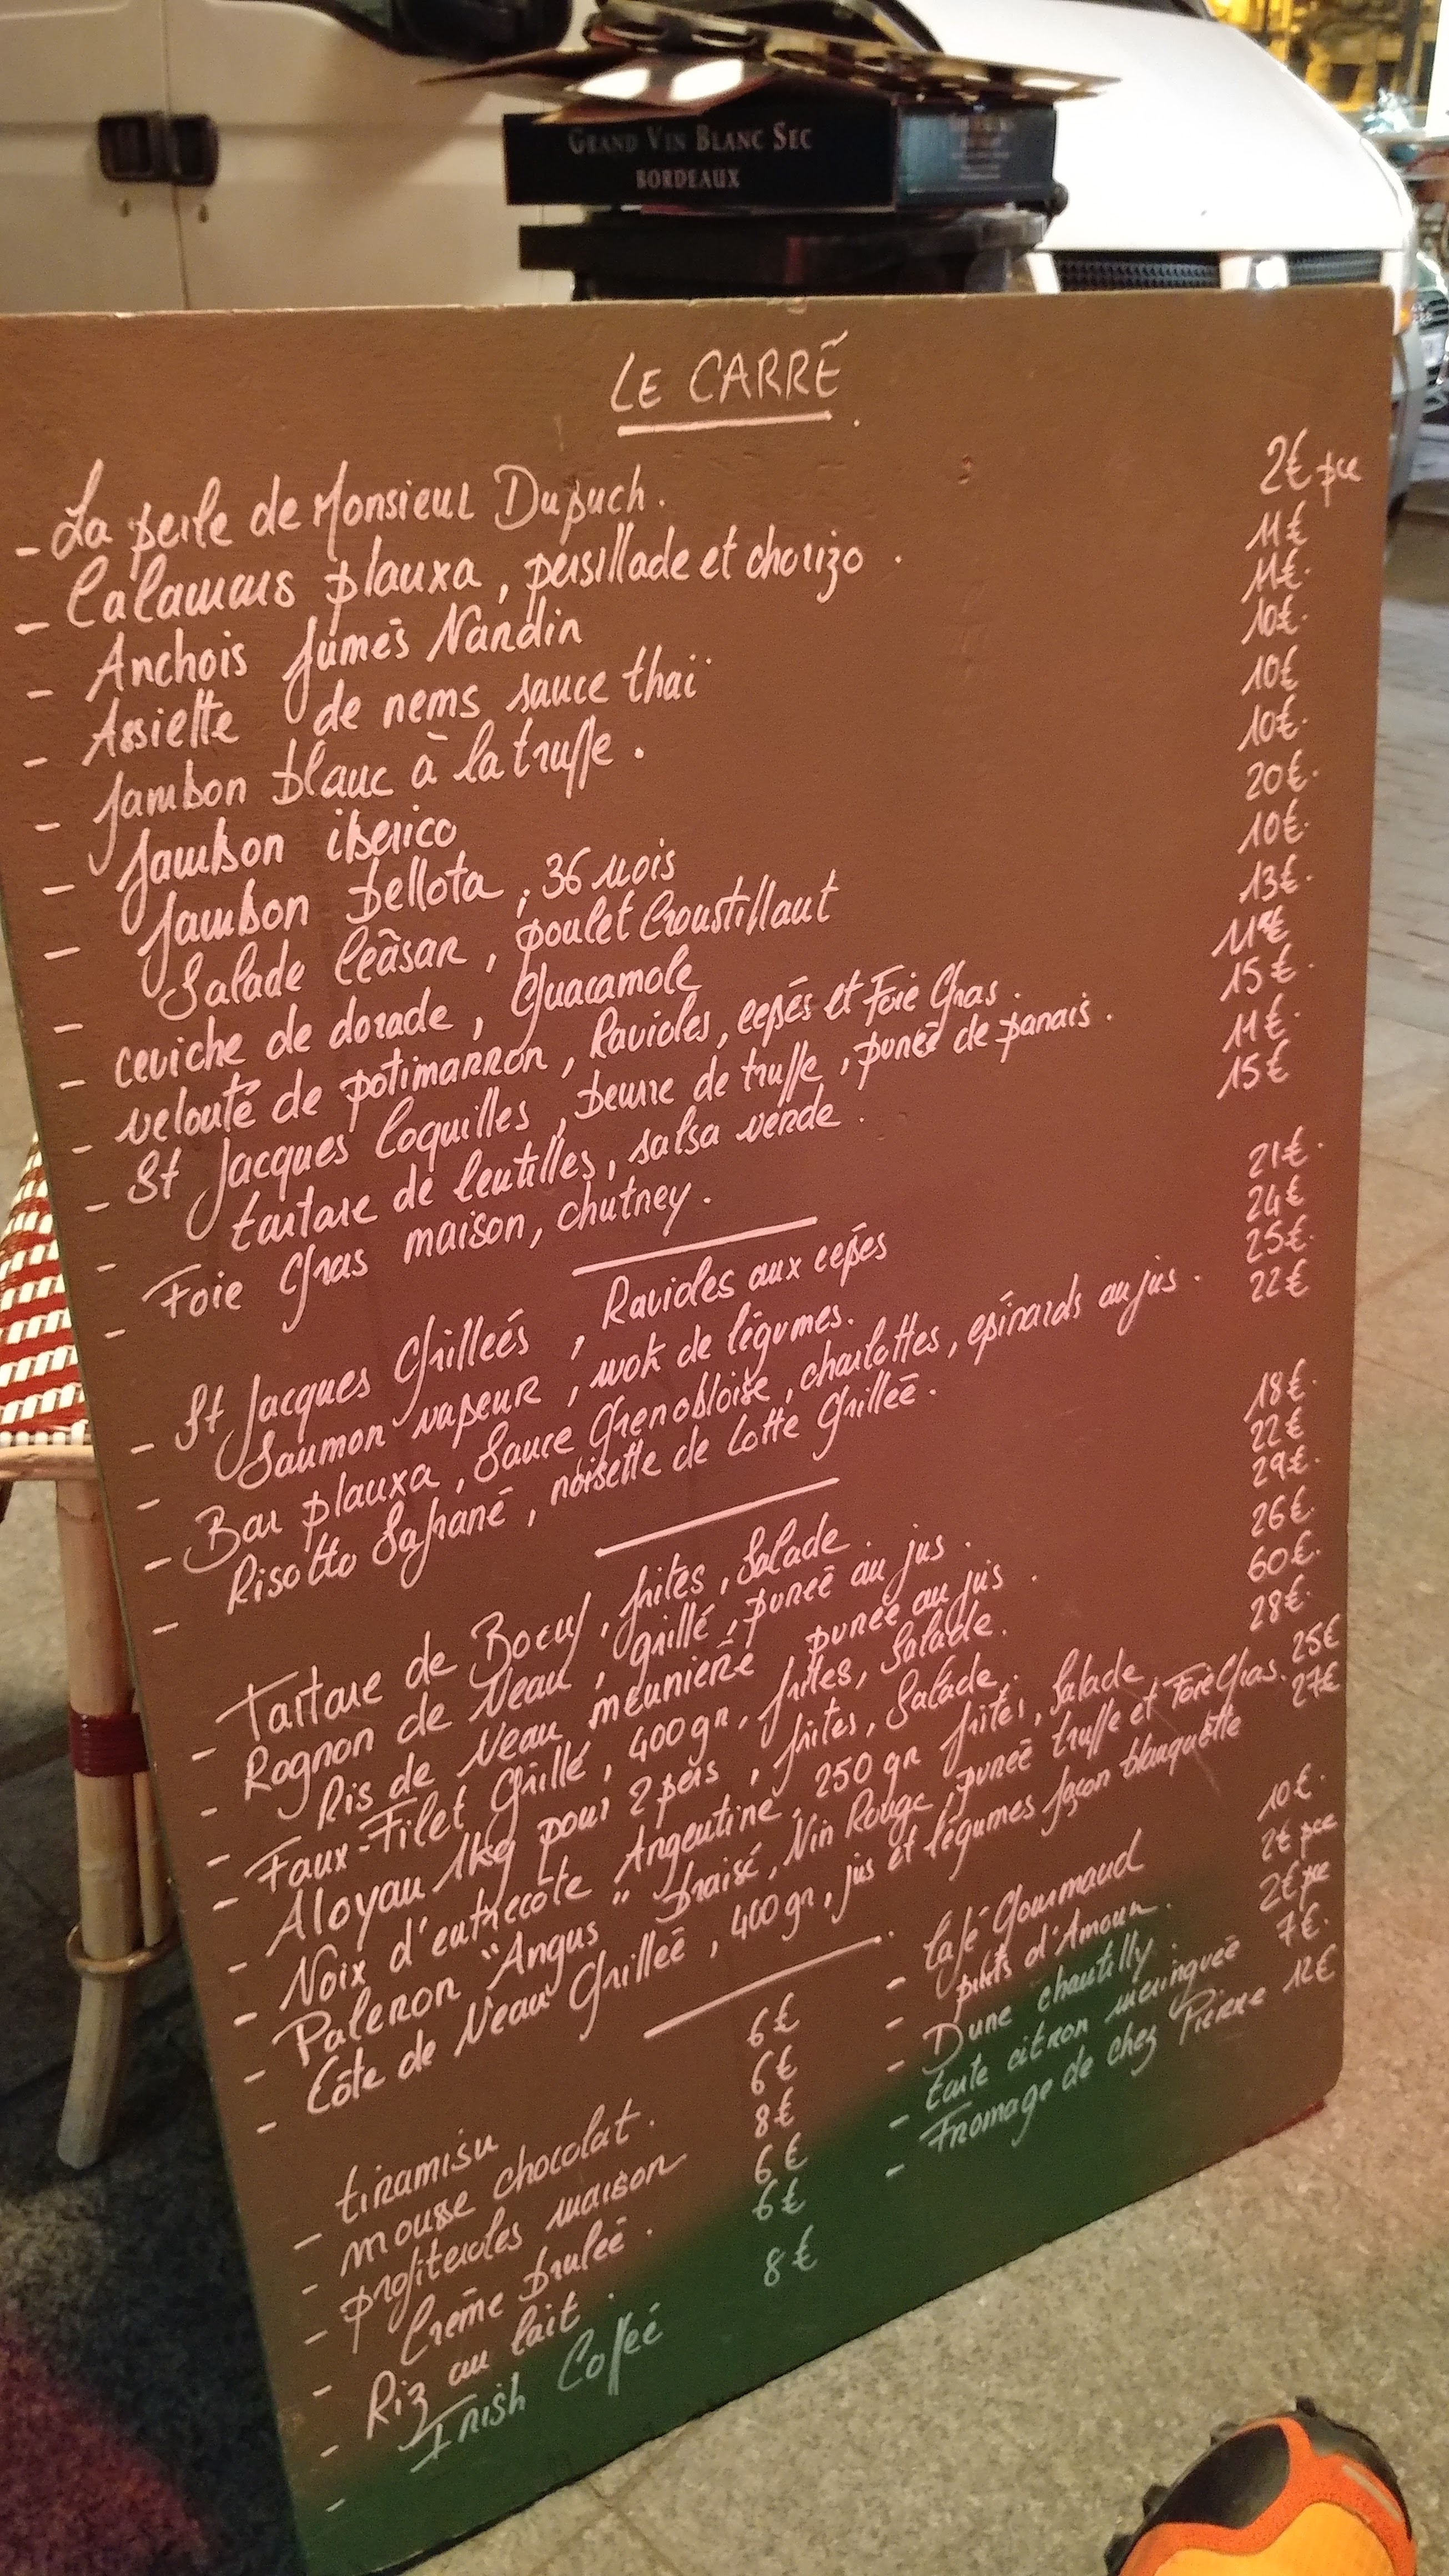 GRAND VIN BLANC SEC
BORDEAUX
LE CARRÉ
- La perle de Monsieur Dupuch. 2€ pce
- Calamars plauxa, persillade et chorizo. 11€
- Anchois fumés Nardin 11€.
- Assiette de nems sauce thaï 10€.
- Jambon blanc à la truffe. 10€
- Jambon iberico 10€.
- Jambon bellota, 36 mois 20€.
- Salade Ceâsar, poulet croustillant 10€.
- ceviche de dorade, Guacamole 13€.
- velouté de potimarron, Ravioles, cepés et Foie Gras. 11€
- St Jacques Coquilles, beurre de truffe, pureé de panais. 15€.
- tartare de lentilles, salsa verde. 11€.
- Foie Gras maison, chutney. 15€
- St Jacques Grilleés, Ravioles aux cepés 21€.
- Saumon vapeur, wok de légumes. 24€
- Bar plauxa, Sauce Grenobloise, charlottes, epinards au jus. 25€.
- Risotto Safrané, noisette de Lotte Grilleé. 22€
- Tartare de Boeuf, frites, Salade. 18€.
- Rognon de Veau, grillé, pureé au jus. 22€
- Ris de Veau meunière pureé au jus. 29€.
- Faux-Filet Grillé, 400 gr, frites, Salade. 26€.
- Aloyau 1kg pour 2 pers, frites, Salade. 60€.
- Noix d'entrecôte Argentine, 250 gr frites, Salade 28€.
- Paleron "Angus" braisé, Vin Rouge, pureé truffe et Foie Gras. 25€
- Côte de Veau Grilleé, 400 gr, jus et légumes façon blanquette 27€
- tiramisu 6€
- mousse chocolat. 6€
- profiteroles maison 8€
- Crème bruleé. 6€
- Riz au lait. 6€
- Irish Coffeé 8€
- Café Gourmand 10€.
- puits d'Amour. 2€ pce
- Dune chantilly 2€ pce
- tarte citron meringueé 7€.
- Fromage de chez Pierre 12€